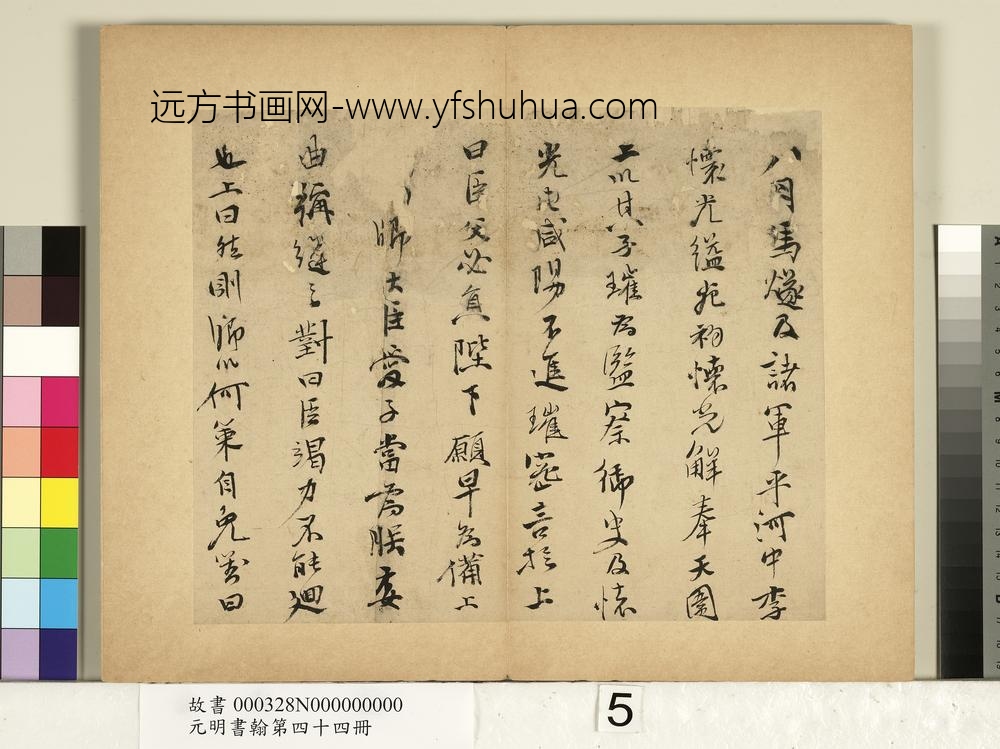 远方书画网-www.yfshuhua.com
八月馬燧及諸軍平河中李
懷光縊死初懷光解奉天圍
上以其子璀為監察御史及懷
光屯咸陽不進璀密言於上
曰臣父必負陛下願早為備上
卿大臣愛子當為朕委
曲彌縫之對曰臣竭力不能迴
也上曰然則卿以何策自免對曰
故書 000328N000000000
元明書翰第四十四冊
5